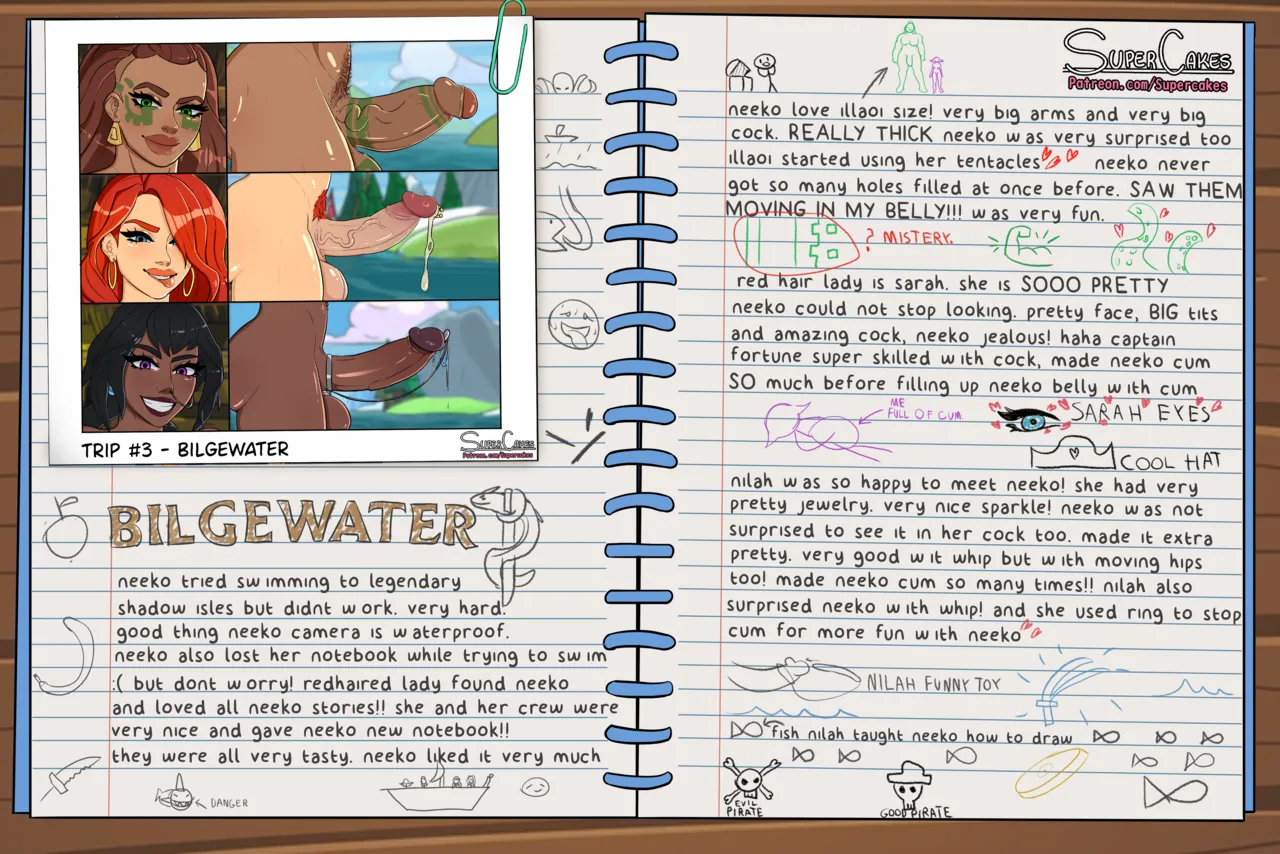 TRIP #3 - BILGEWATER
SUPERCAKES
Patreon.com/Supercakes
BILGEWATER
neeko tried swimming to legendary
shadow isles but didnt work. very hard!
good thing neeko camera is waterproof.
neeko also lost her notebook while trying to swim
:( but dont worry! redhaired lady found neeko
and loved all neeko stories!! she and her crew were
very nice and gave neeko new notebook!!
they were all very tasty. neeko liked it very much
DANGER
SUPERCAKES
Patreon.com/Supercakes
neeko love illaoi size! very big arms and very big
cock. REALLY THICK neeko was very surprised too
illaoi started using her tentacles neeko never
got so many holes filled at once before. SAW THEM
MOVING IN MY BELLY!!! was very fun.
? MISTERY.
red hair lady is sarah. she is SOOO PRETTY
neeko could not stop looking. pretty face, BIG tits
and amazing cock, neeko jealous! haha captain
fortune super skilled with cock, made neeko cum
SO much before filling up neeko belly with cum
ME
FULL OF CUM.
SARAH EYES
COOL HAT
nilah was so happy to meet neeko! she had very
pretty jewelry. very nice sparkle! neeko was not
surprised to see it in her cock too. made it extra
pretty. very good wit whip but with moving hips
too! made neeko cum so many times!! nilah also
surprised neeko with whip! and she used ring to stop
cum for more fun with neeko
NILAH FUNNY TOY
fish nilah taught neeko how to draw
EVIL
PIRATE
GOOD PIRATE